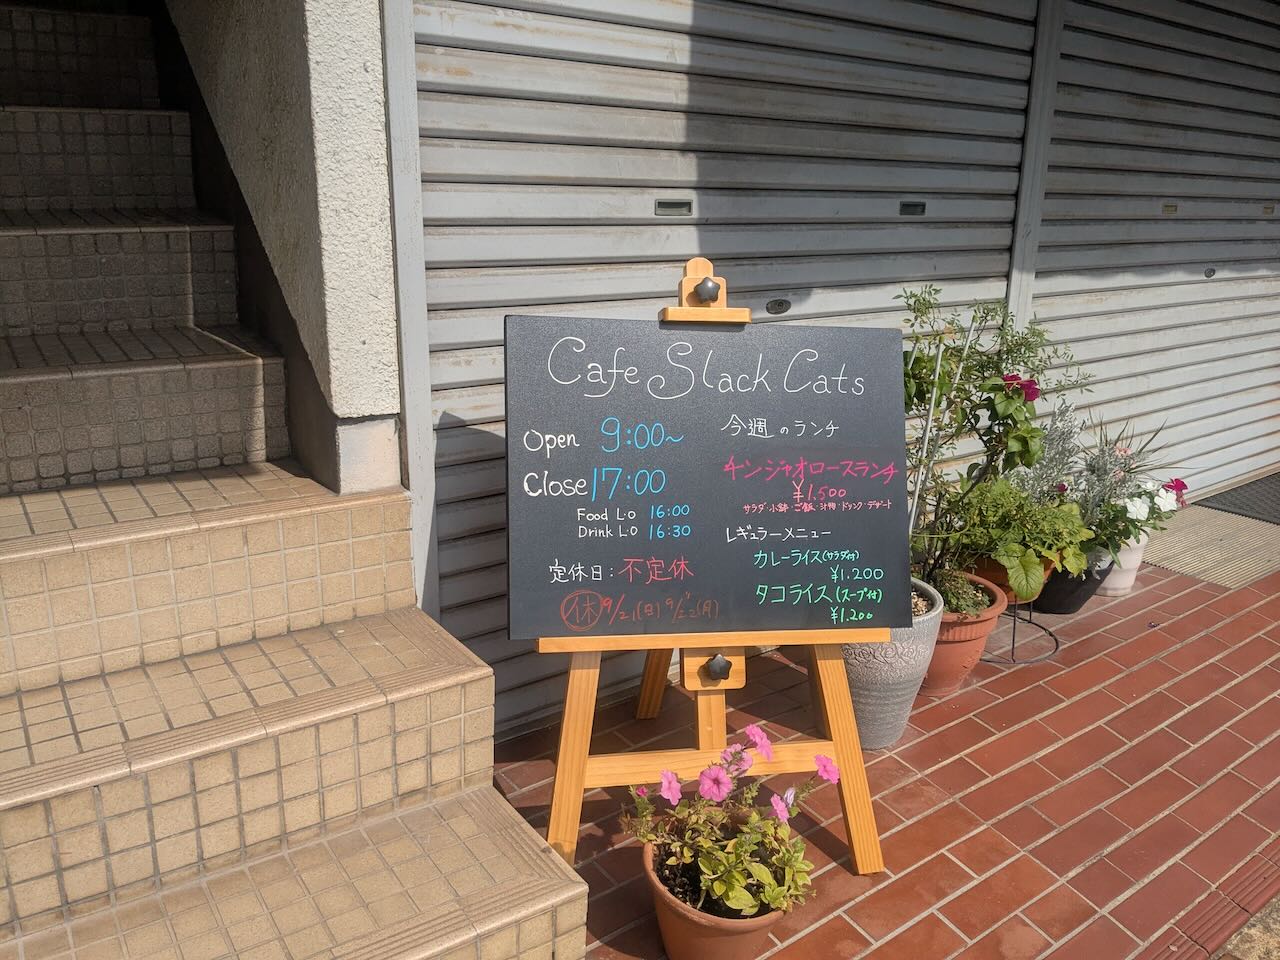 Cafe Slack Cats
Open 9:00~
Close 17:00
Food L.O 16:00
Drink L.O 16:30
定休日:不定休
休 9/21(日) 9/22(月)
今週のランチ
チンジャオロースランチ
¥1,500
サラダ・小鉢・ご飯・汁物・ドリンク・デザート
レギュラーメニュー
カレーライス(サラダ付)
¥1.200
タコライス(スープ付)
¥1.200